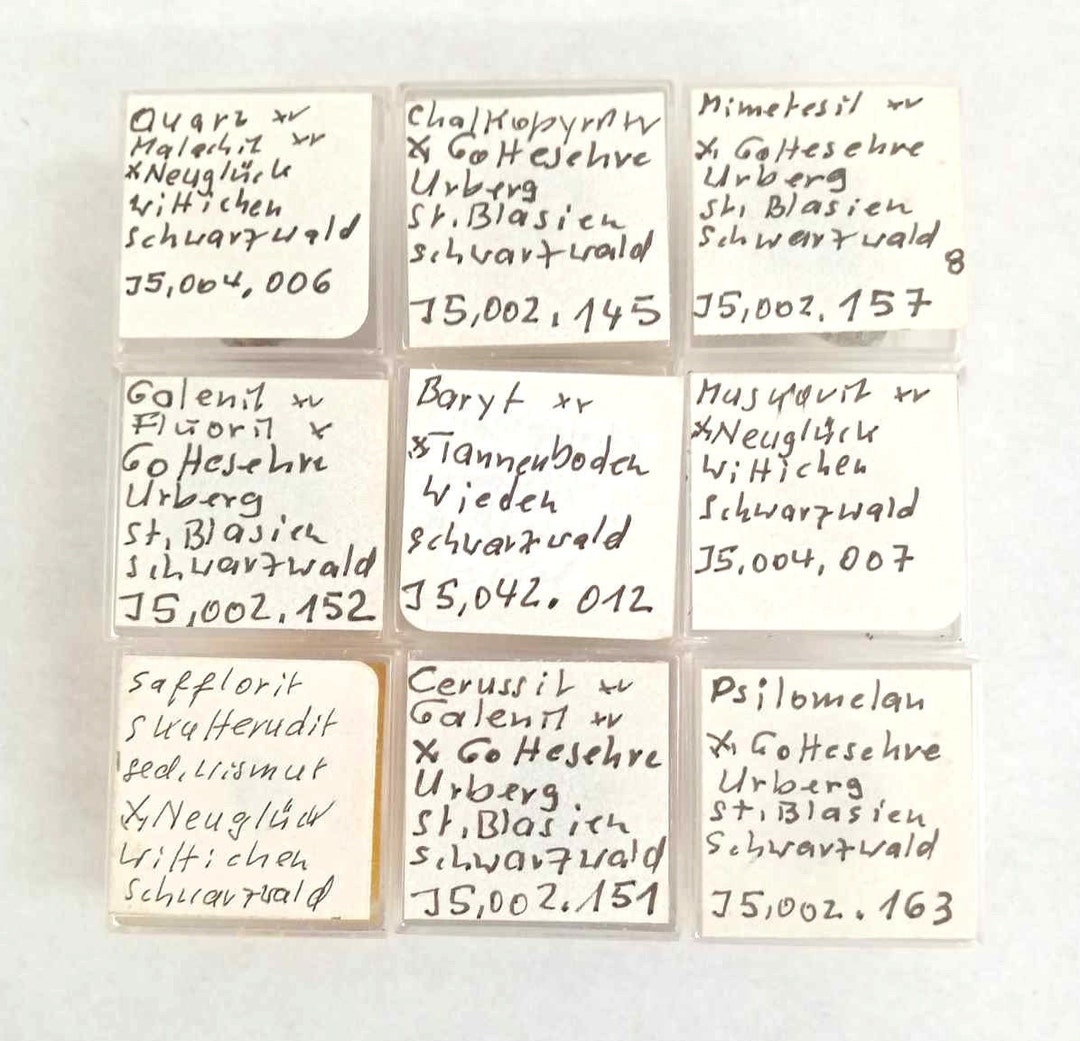 Quarz xx
Malachit xx
⚒ Neuglück
Wittichen
Schwarzwald
J5,004,006
Chalkopyrit xx
⚒ Gottesehre
Urberg
St. Blasien
Schwarzwald
J5,002.145
Mimetesit xx
⚒ Gottesehre
Urberg
St. Blasien
Schwarzwald
8
J5,002.157
Galenit xx
Fluorit x
Gottesehre
Urberg
St. Blasien
Schwarzwald
J5,002.152
Baryt xx
⚒ Tannenboden
Wieden
Schwarzwald
J5,042.012
Muskovit xx
⚒ Neuglück
Wittichen
Schwarzwald
J5,004,007
Safflorit
Skutterudit
ged. Wismut
⚒ Neuglück
Wittichen
Schwarzwald
Cerussit xx
Galenit xx
⚒ Gottesehre
Urberg
St. Blasien
Schwarzwald
J5,002.151
Psilomelan
⚒ Gottesehre
Urberg
St. Blasien
Schwarzwald
J5,002.163